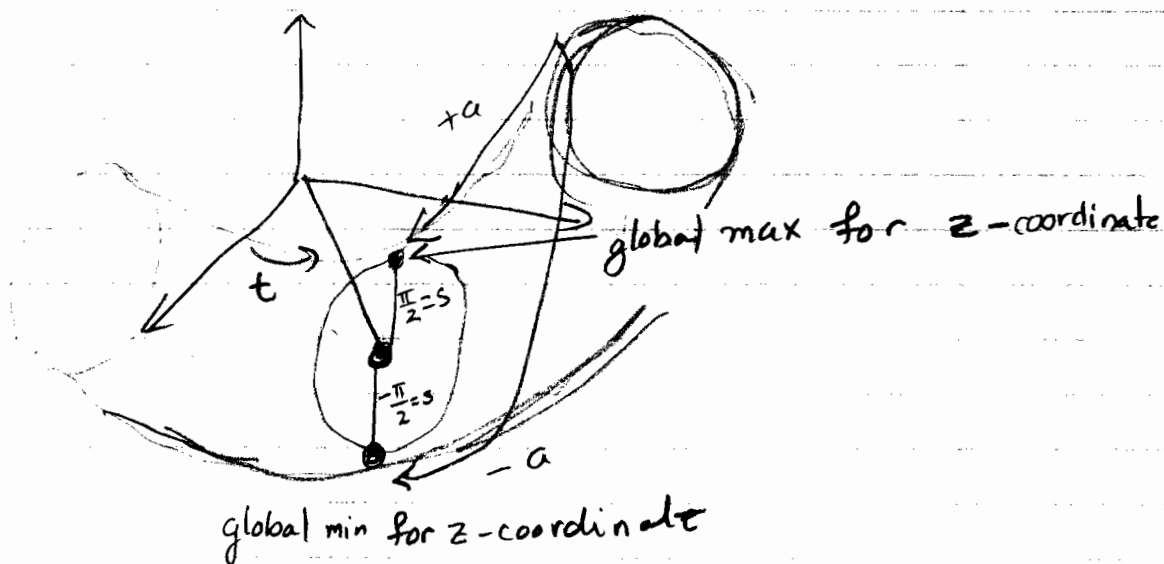 +a
global max for z-coordinate
t
π/2 = s
-π/2 = s
- a
global min for z-coordinate